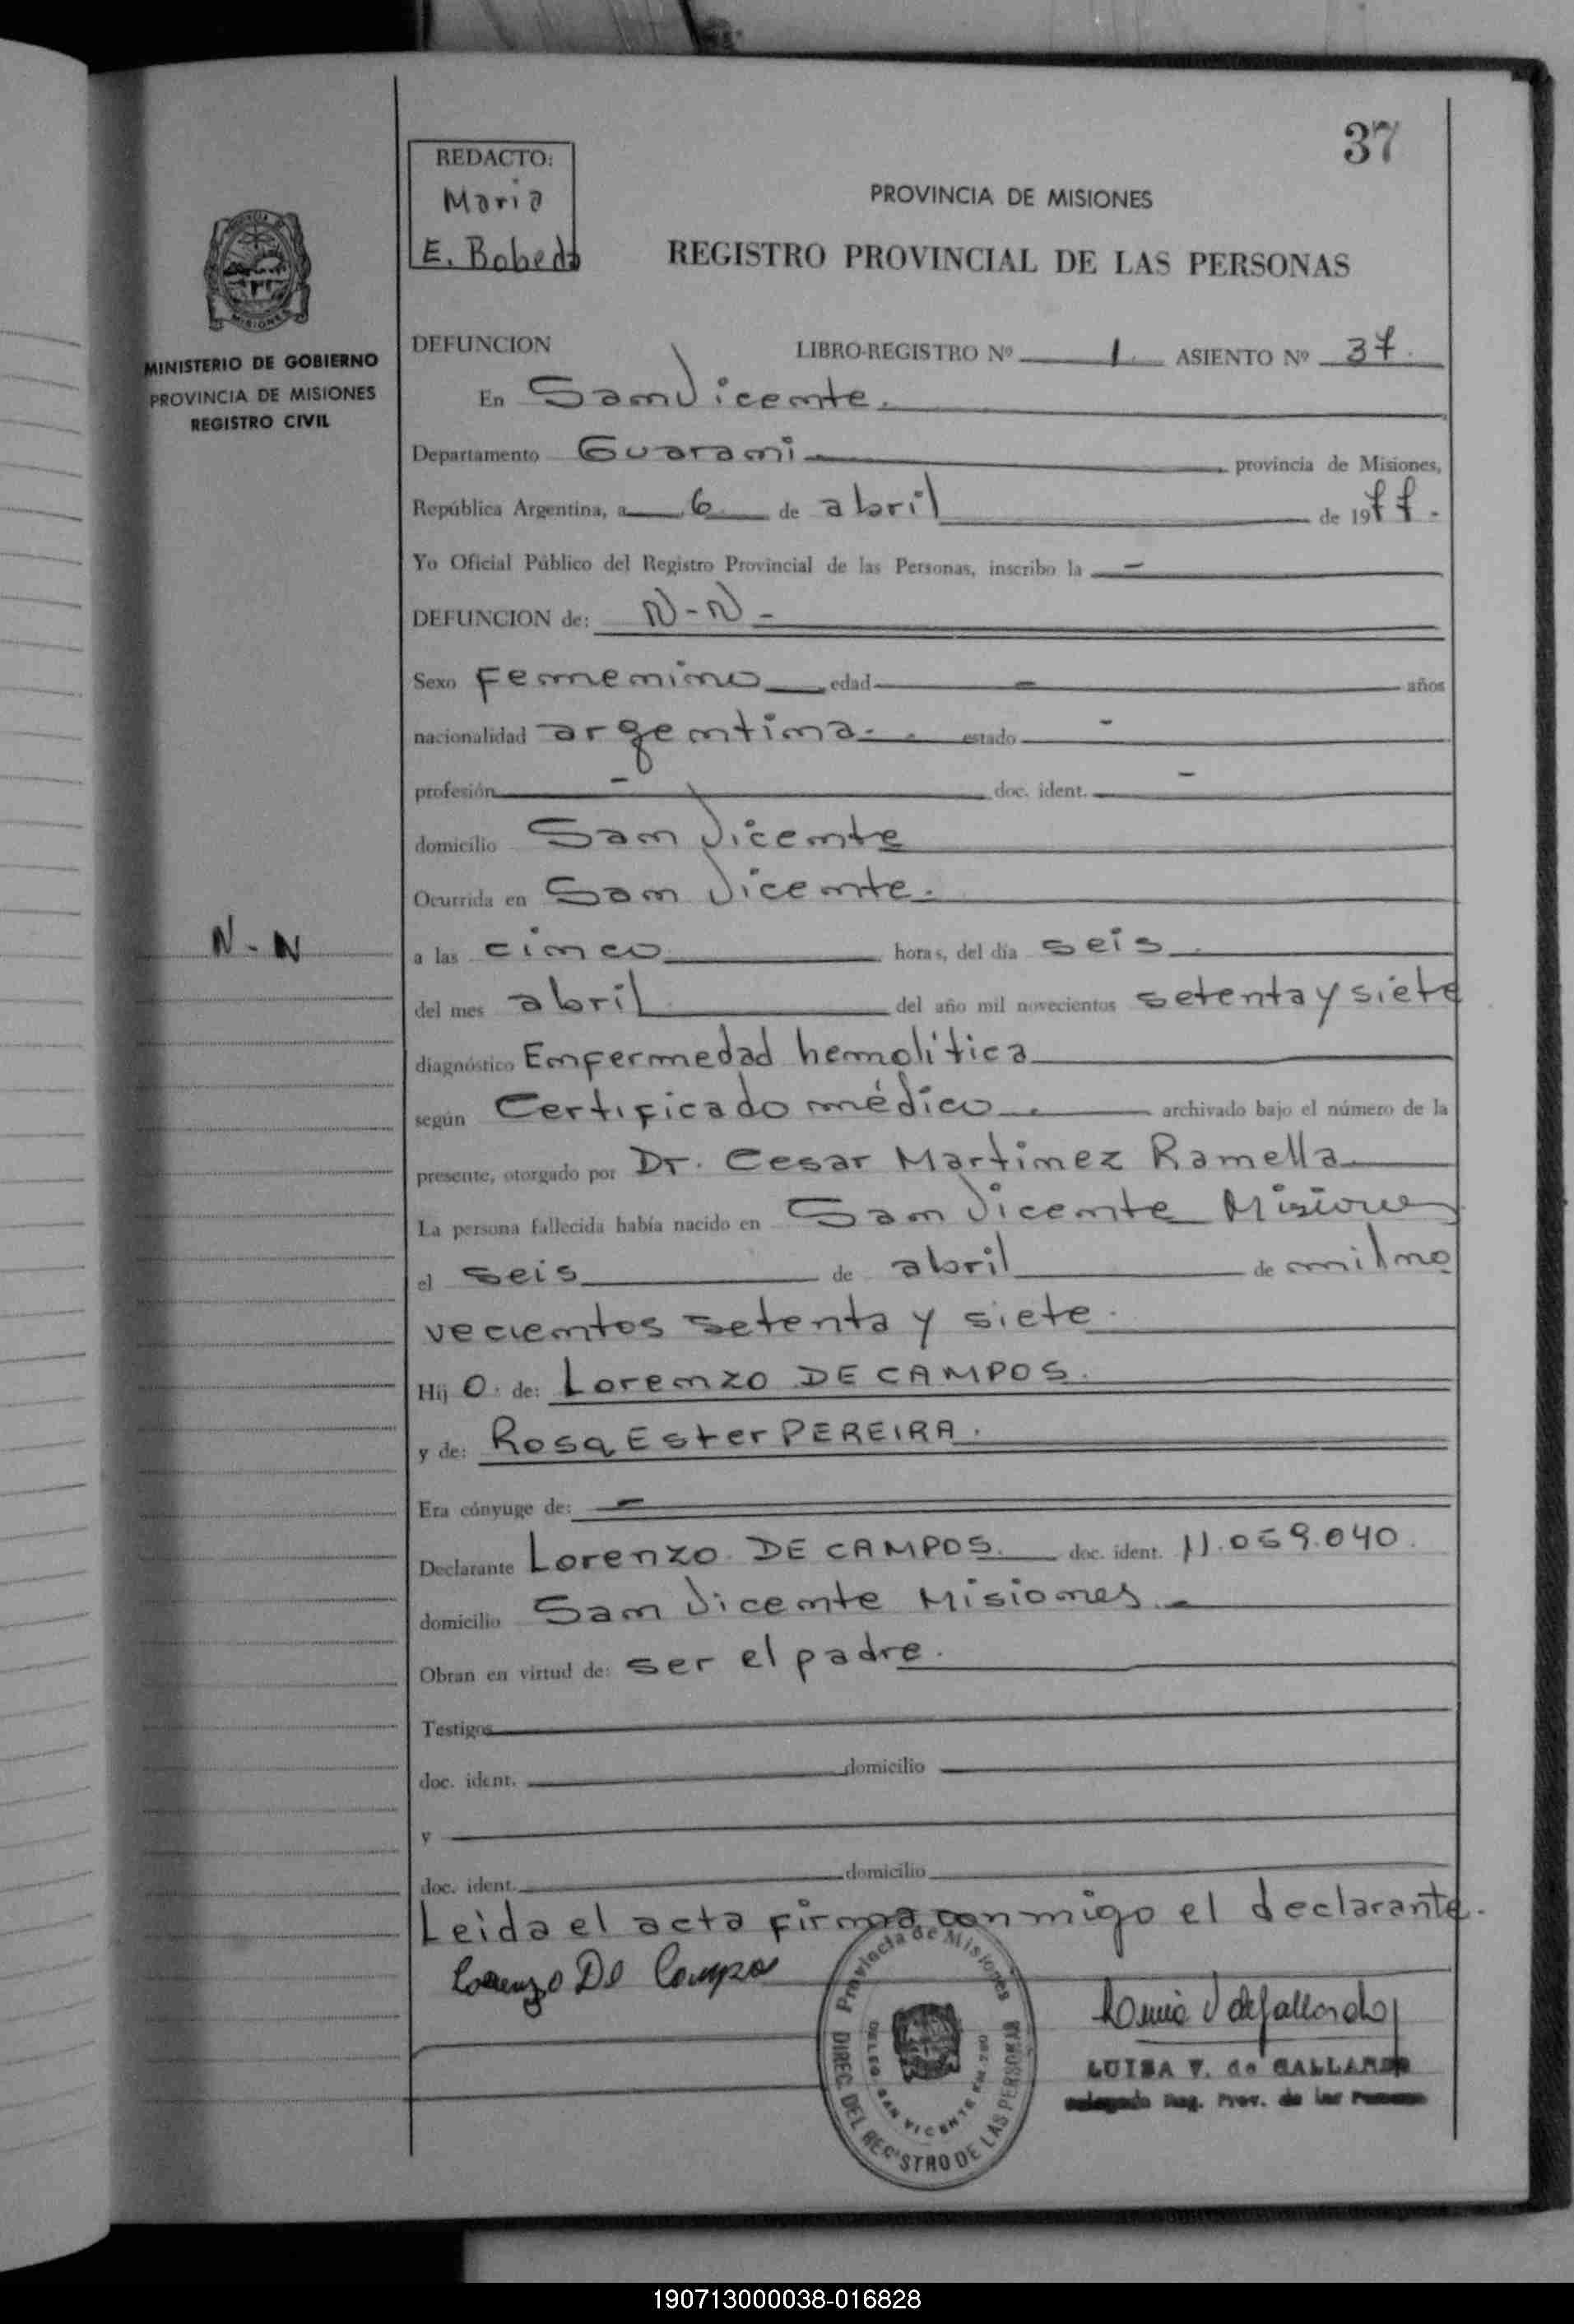 37
REDACTO:
Maria
E. Bobeda
PROVINCIA DE MISIONES
REGISTRO PROVINCIAL DE LAS PERSONAS
MINISTERIO DE GOBIERNO
PROVINCIA DE MISIONES
REGISTRO CIVIL
DEFUNCION LIBRO-REGISTRO Nº 1. ASIENTO Nº 37.
En San Vicente.
Departamento Guarani provincia de Misiones,
República Argentina, a 6 de abril de 1977.
Yo Oficial Público del Registro Provincial de las Personas, inscribo la -
DEFUNCION de: N-N-
Sexo Femenino edad - años
nacionalidad argentina. estado -
profesión - doc. ident. -
domicilio San Vicente
Ocurrida en San Vicente.
N-N
a las cinco horas, del día seis
del mes abril del año mil novecientos setenta y siete
diagnóstico Enfermedad hemolítica
según Certificado médico. archivado bajo el número de la
presente, otorgado por Dr. Cesar Martinez Ramella
La persona fallecida había nacido en San Vicente Misiones
el seis de abril de mil no
vecientos setenta y siete.
Hij o. de: Lorenzo DE CAMPOS.
y de: Rosa Ester PEREIRA.
Era cónyuge de: -
Declarante Lorenzo DE CAMPOS. doc. ident. 11.059.040.
domicilio San Vicente Misiones.
Obran en virtud de: ser el padre.
Testigos
doc. ident. domicilio
y
doc. ident. domicilio
Leida el acta firma conmigo el declarante.
Lorenzo De Campos
Provincia de Misiones
DIREC. DEL REGISTRO DE LAS PERSONAS
DELEG. SAN VICENTE
LUISA V. de GALLARDO
Delegado Reg. Prov. de las Personas
190713000038-016828